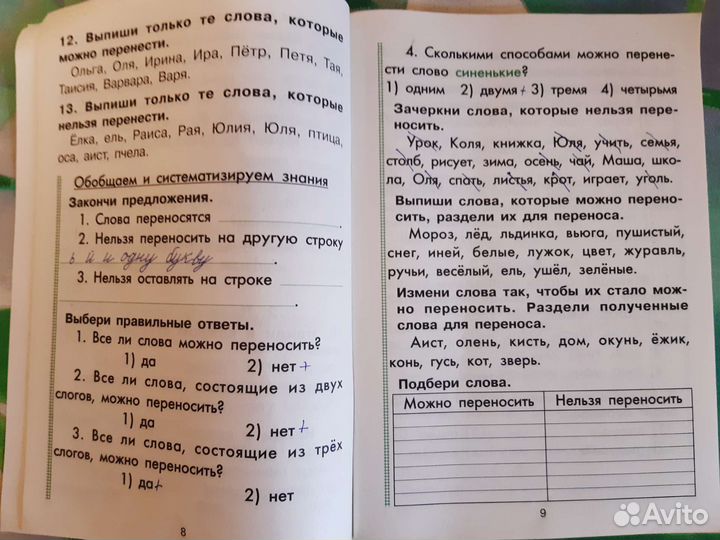 12. Выпиши только те слова, которые
можно перенести.
Ольга, Оля, Ирина, Ира, Пётр, Петя, Тая,
Таисия, Варвара, Варя.
13. Выпиши только те слова, которые
нельзя перенести.
Ёлка, ель, Раиса, Рая, Юлия, Юля, птица,
оса, аист, пчела.
Обобщаем и систематизируем знания
Закончи предложения.
1. Слова переносятся
2. Нельзя переносить на другую строку
ь й и одну букву
3. Нельзя оставлять на строке
Выбери правильные ответы.
1. Все ли слова можно переносить?
1) да 2) нет +
2. Все ли слова, состоящие из двух
слогов, можно переносить?
1) да 2) нет +
3. Все ли слова, состоящие из трёх
слогов, можно переносить?
1) да + 2) нет
8
4. Сколькими способами можно перене-
сти слово синенькие?
1) одним 2) двумя + 3) тремя 4) четырьмя
Зачеркни слова, которые нельзя пере-
носить.
Урок, Коля, книжка, Юля, учить, семья,
столб, рисует, зима, осень, чай, Маша, шко-
ла, Оля, спать, листья, крот, играет, уголь.
Выпиши слова, которые можно перено-
сить, раздели их для переноса.
Мороз, лёд, льдинка, вьюга, пушистый,
снег, иней, белые, лужок, цвет, журавль,
ручьи, весёлый, ель, ушёл, зелёные.
Измени слова так, чтобы их стало мож-
но переносить. Раздели полученные
слова для переноса.
Аист, олень, кисть, дом, окунь, ёжик,
конь, гусь, кот, зверь.
Подбери слова.
Можно переносить Нельзя переносить
9
Avito